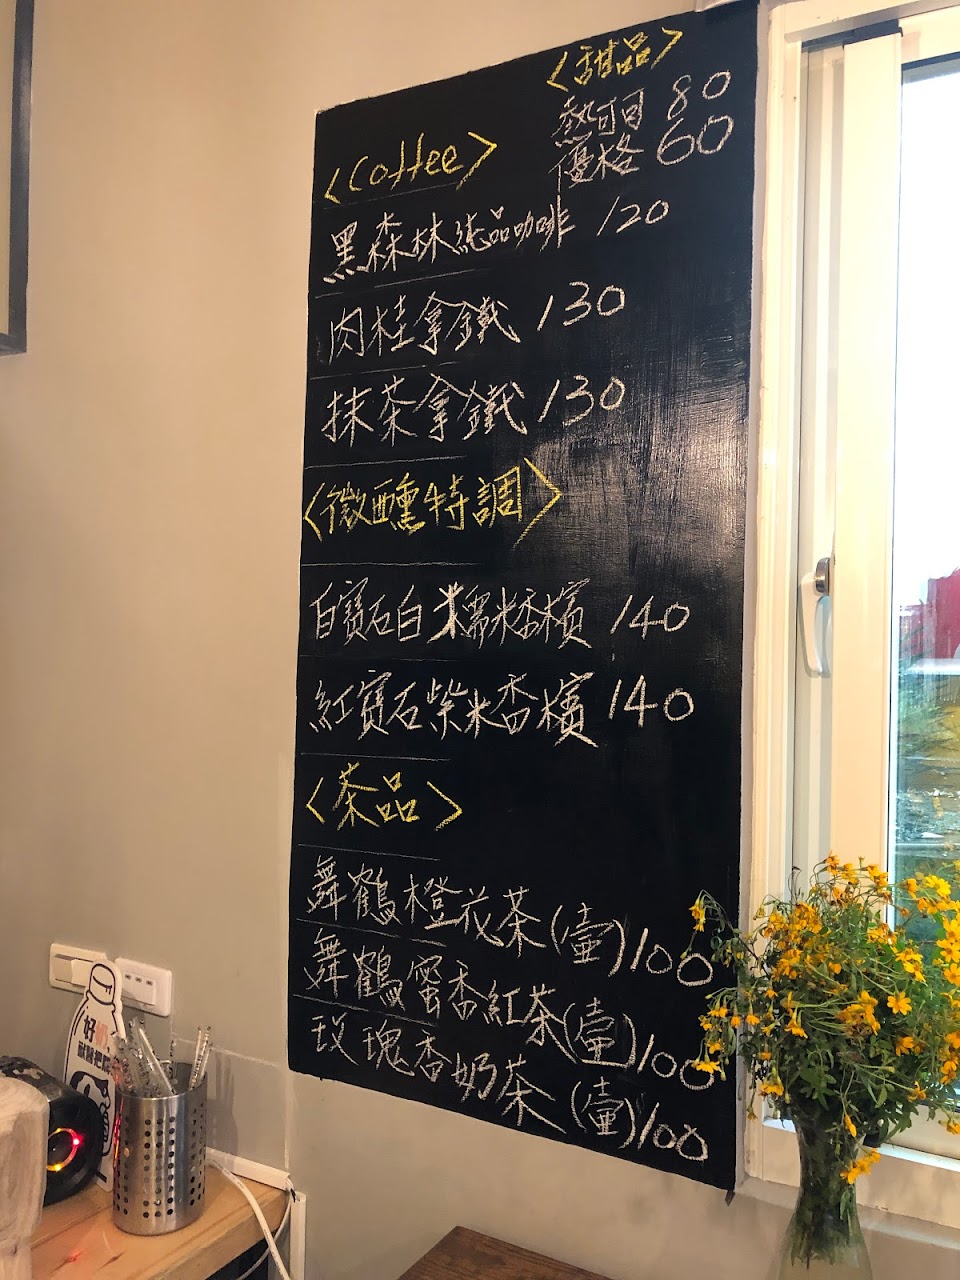 <甜品>
熱可可 80
優格 60
<Coffee>
黑森林純品咖啡 120
肉桂拿鐵 130
抹茶拿鐵 130
<微醺特調>
白寶石白糯米香檳 140
紅寶石紫米香檳 140
<茶品>
舞鶴橙花茶(壺)100
舞鶴蜜香紅茶(壺)100
玫瑰杏奶茶(壺)100
好奶